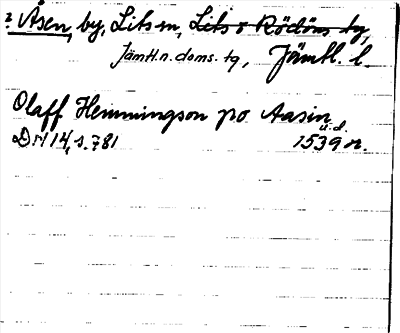 ? Åsen, by, Lits sn, Lits o Rödöns tg,
Jämtl.n.doms.tg, Jämtl. l.
Olaff Hemmingson po Aasin
u.d.
DN 14, s.781 1539 n.